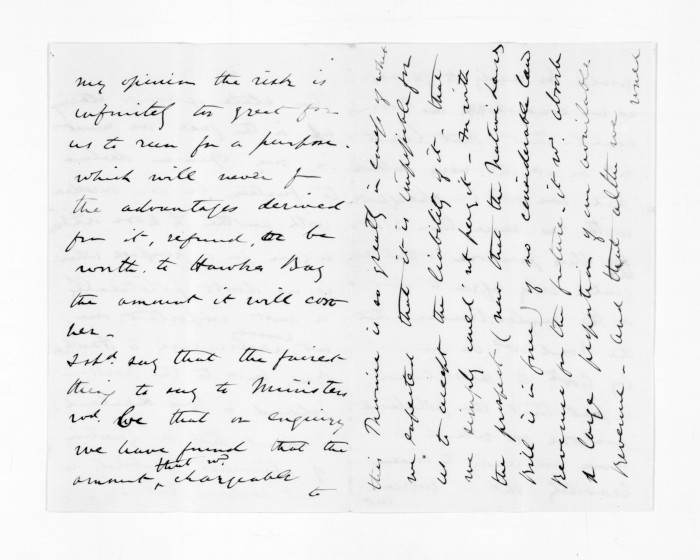 my opinion the risk is
infinitely too great for
us to run for a purpose.
which will never f
the advantages derived
from it, refund, or be
worth. to Hawke's Bay
the amount it will cost
her_
I shd. say that the fairest
thing to say to Ministers
wd. be that on enquiry
we have found that the
amount that wd. chargeable
to
this Province is so greatly in excess of what
we expected that it is impossible for
us to accept the liability of it_ that
we simply could not pay it_ for with
the prospect (now that the Native Land
Bill is in force) of no considerable land
Revenue for the future_ it wd. absorb
a large proportion of our available
Revenue_ and that altho we